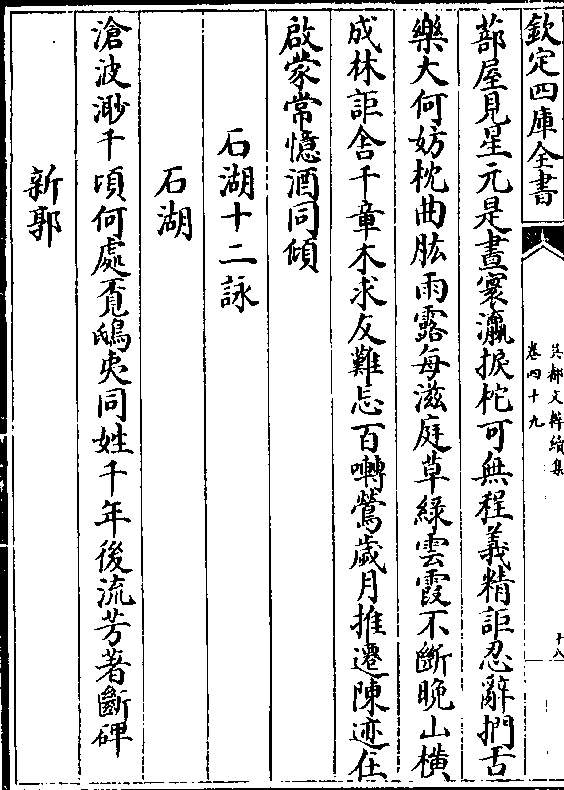 欽定四庫全書
吳都文粹續集
卷四十九
十八
蔀屋見星元是晝寰瀛捩柁可無程義精詎忍辭捫舌
樂大何妨枕曲肱雨露每滋庭草綠雲霞不斷晚山橫
成林詎舍千章木求友難忘百囀鶯歲月推遷陳迹在
啟蒙常憶酒同傾
石湖十二詠
石湖
滄波渺千頃何處覔鴟夷同姓千年後流芳著斷碑
新郭